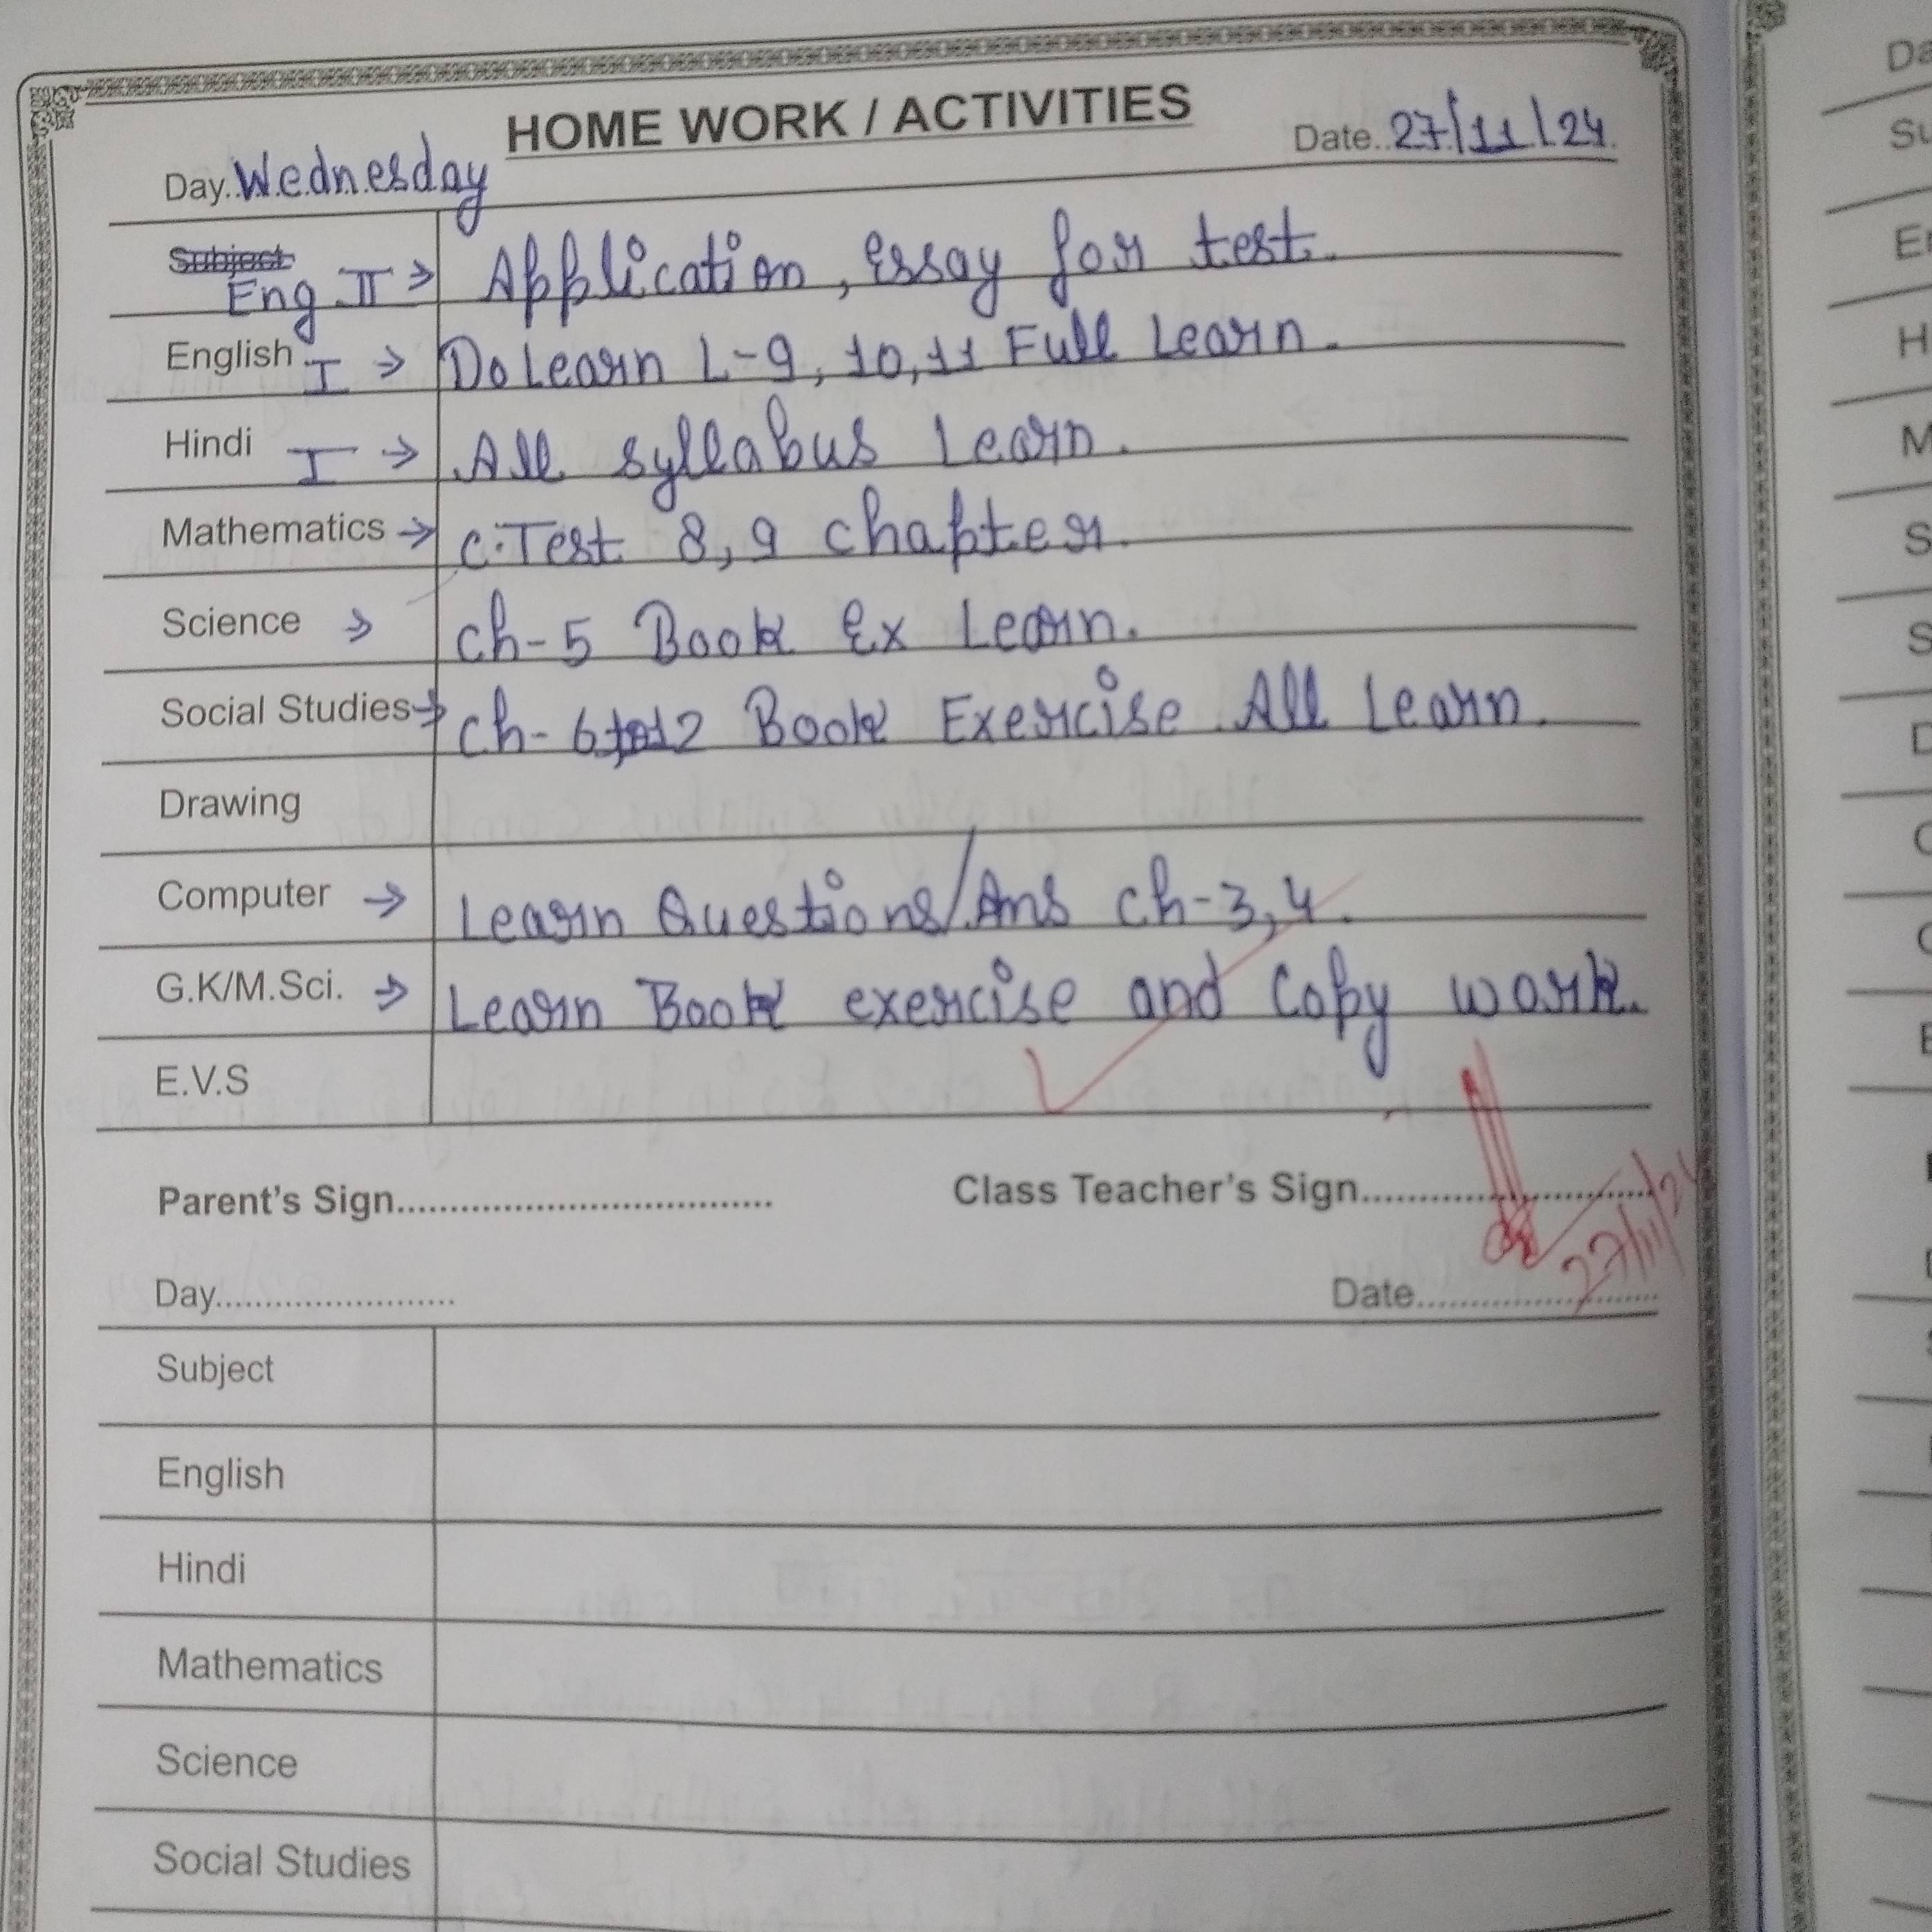 HOME WORK / ACTIVITIES
Day..Wednesday Date..27/11/24
Subject
Eng II → Application, Essay for test.
English I → Do Learn L-9, 10, 11 Full Learn.
Hindi I → All syllabus Learn.
Mathematics → C.Test 8, 9 chapter.
Science → Ch-5 Book Ex Learn.
Social Studies → Ch-6 to 12 Book Exercise All Learn.
Drawing
Computer → Learn Questions/Ans Ch-3, 4.
G.K/M.Sci. → Learn Book exercise and Copy work.
E.V.S
Parent's Sign.................................... Class Teacher's Sign............................
27/11/24
Day........................ Date........................
Subject
English
Hindi
Mathematics
Science
Social Studies